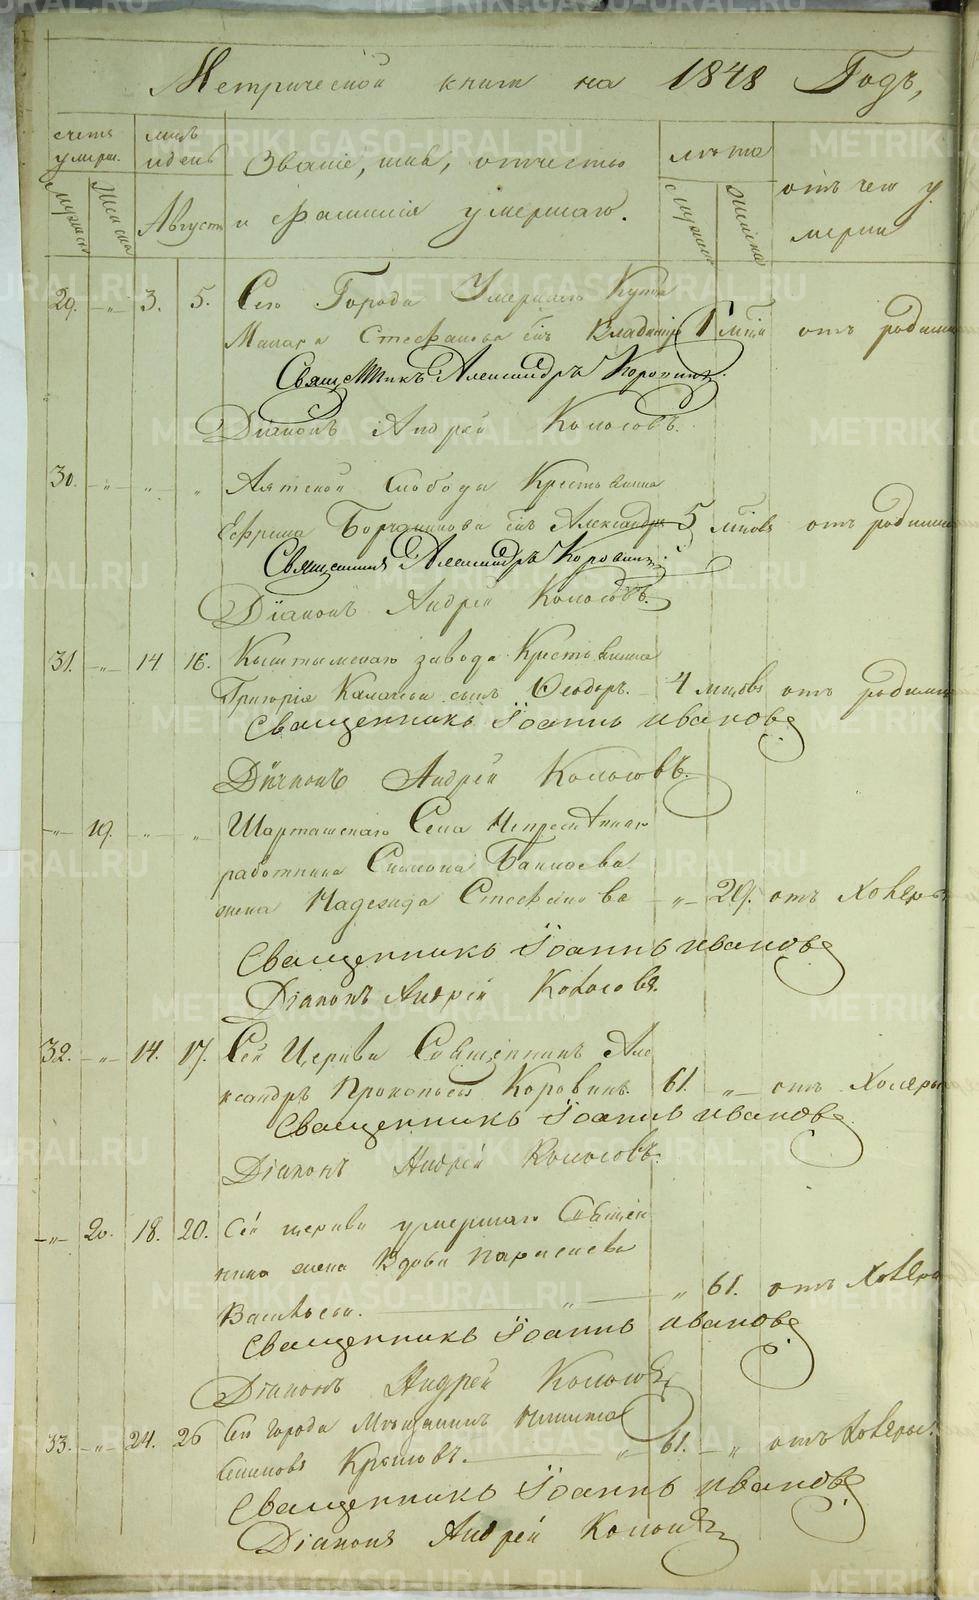 Метрической книги на 1848 Годъ,
счетъ умерш.
мужеска
женска
м-цъ и день
Августъ
Званіе, имя, отчество
и фамилія умершаго.
лѣта
мужеска
женска
отъ чего у
мерли
29. -"- 3. 5. Сего Города Умершаго Купца
Макара Стефанова сынъ Владиміръ 1 м-ца отъ родимц
Священникъ Александръ Коровинъ.
Діаконъ Андрей Колосовъ.
30. -"- " " Аятской Слободы Крестьянина
Ефрима сынъ Александръ 5 м-цовъ отъ родимц
Священникъ Александръ Коровинъ.
Діаконъ Андрей Колосовъ.
31. -"- 14 16. Кыштымскаго завода Крестьянина
Григорія сынъ Ѳеодоръ. 4 м-цовъ отъ родимц
Священникъ Іоаннъ Ивановъ
Діаконъ Андрей Колосовъ.
-"- 19. -"- " Шарташскаго Села Непремѣннаго
работника Симеона
жена Надежда Стефанова -"- 29. отъ Холеры
Священникъ Іоаннъ Ивановъ
Діаконъ Андрей Колосовъ.
32. -"- 14. 17. Сей Церкви Священникъ Але
ксандръ Прокопьевъ Коровинъ. 61. " отъ Холеры
Священникъ Іоаннъ Ивановъ
Діаконъ Андрей Колосовъ.
-"- 20. 18. 20. Сей церкви умершаго Священ
ника жена Вдова Параскева
Васильева. " " 61. отъ Холеры
Священникъ Іоаннъ Ивановъ
Діаконъ Андрей Колосовъ
33. -"- 24. 26 Сего города Мѣщанинъ Никита
Семеновъ " 61. -"- отъ Холеры.
Священникъ Іоаннъ Ивановъ
Діаконъ Андрей Колосовъ
METRIKI.GASO-URAL.RU